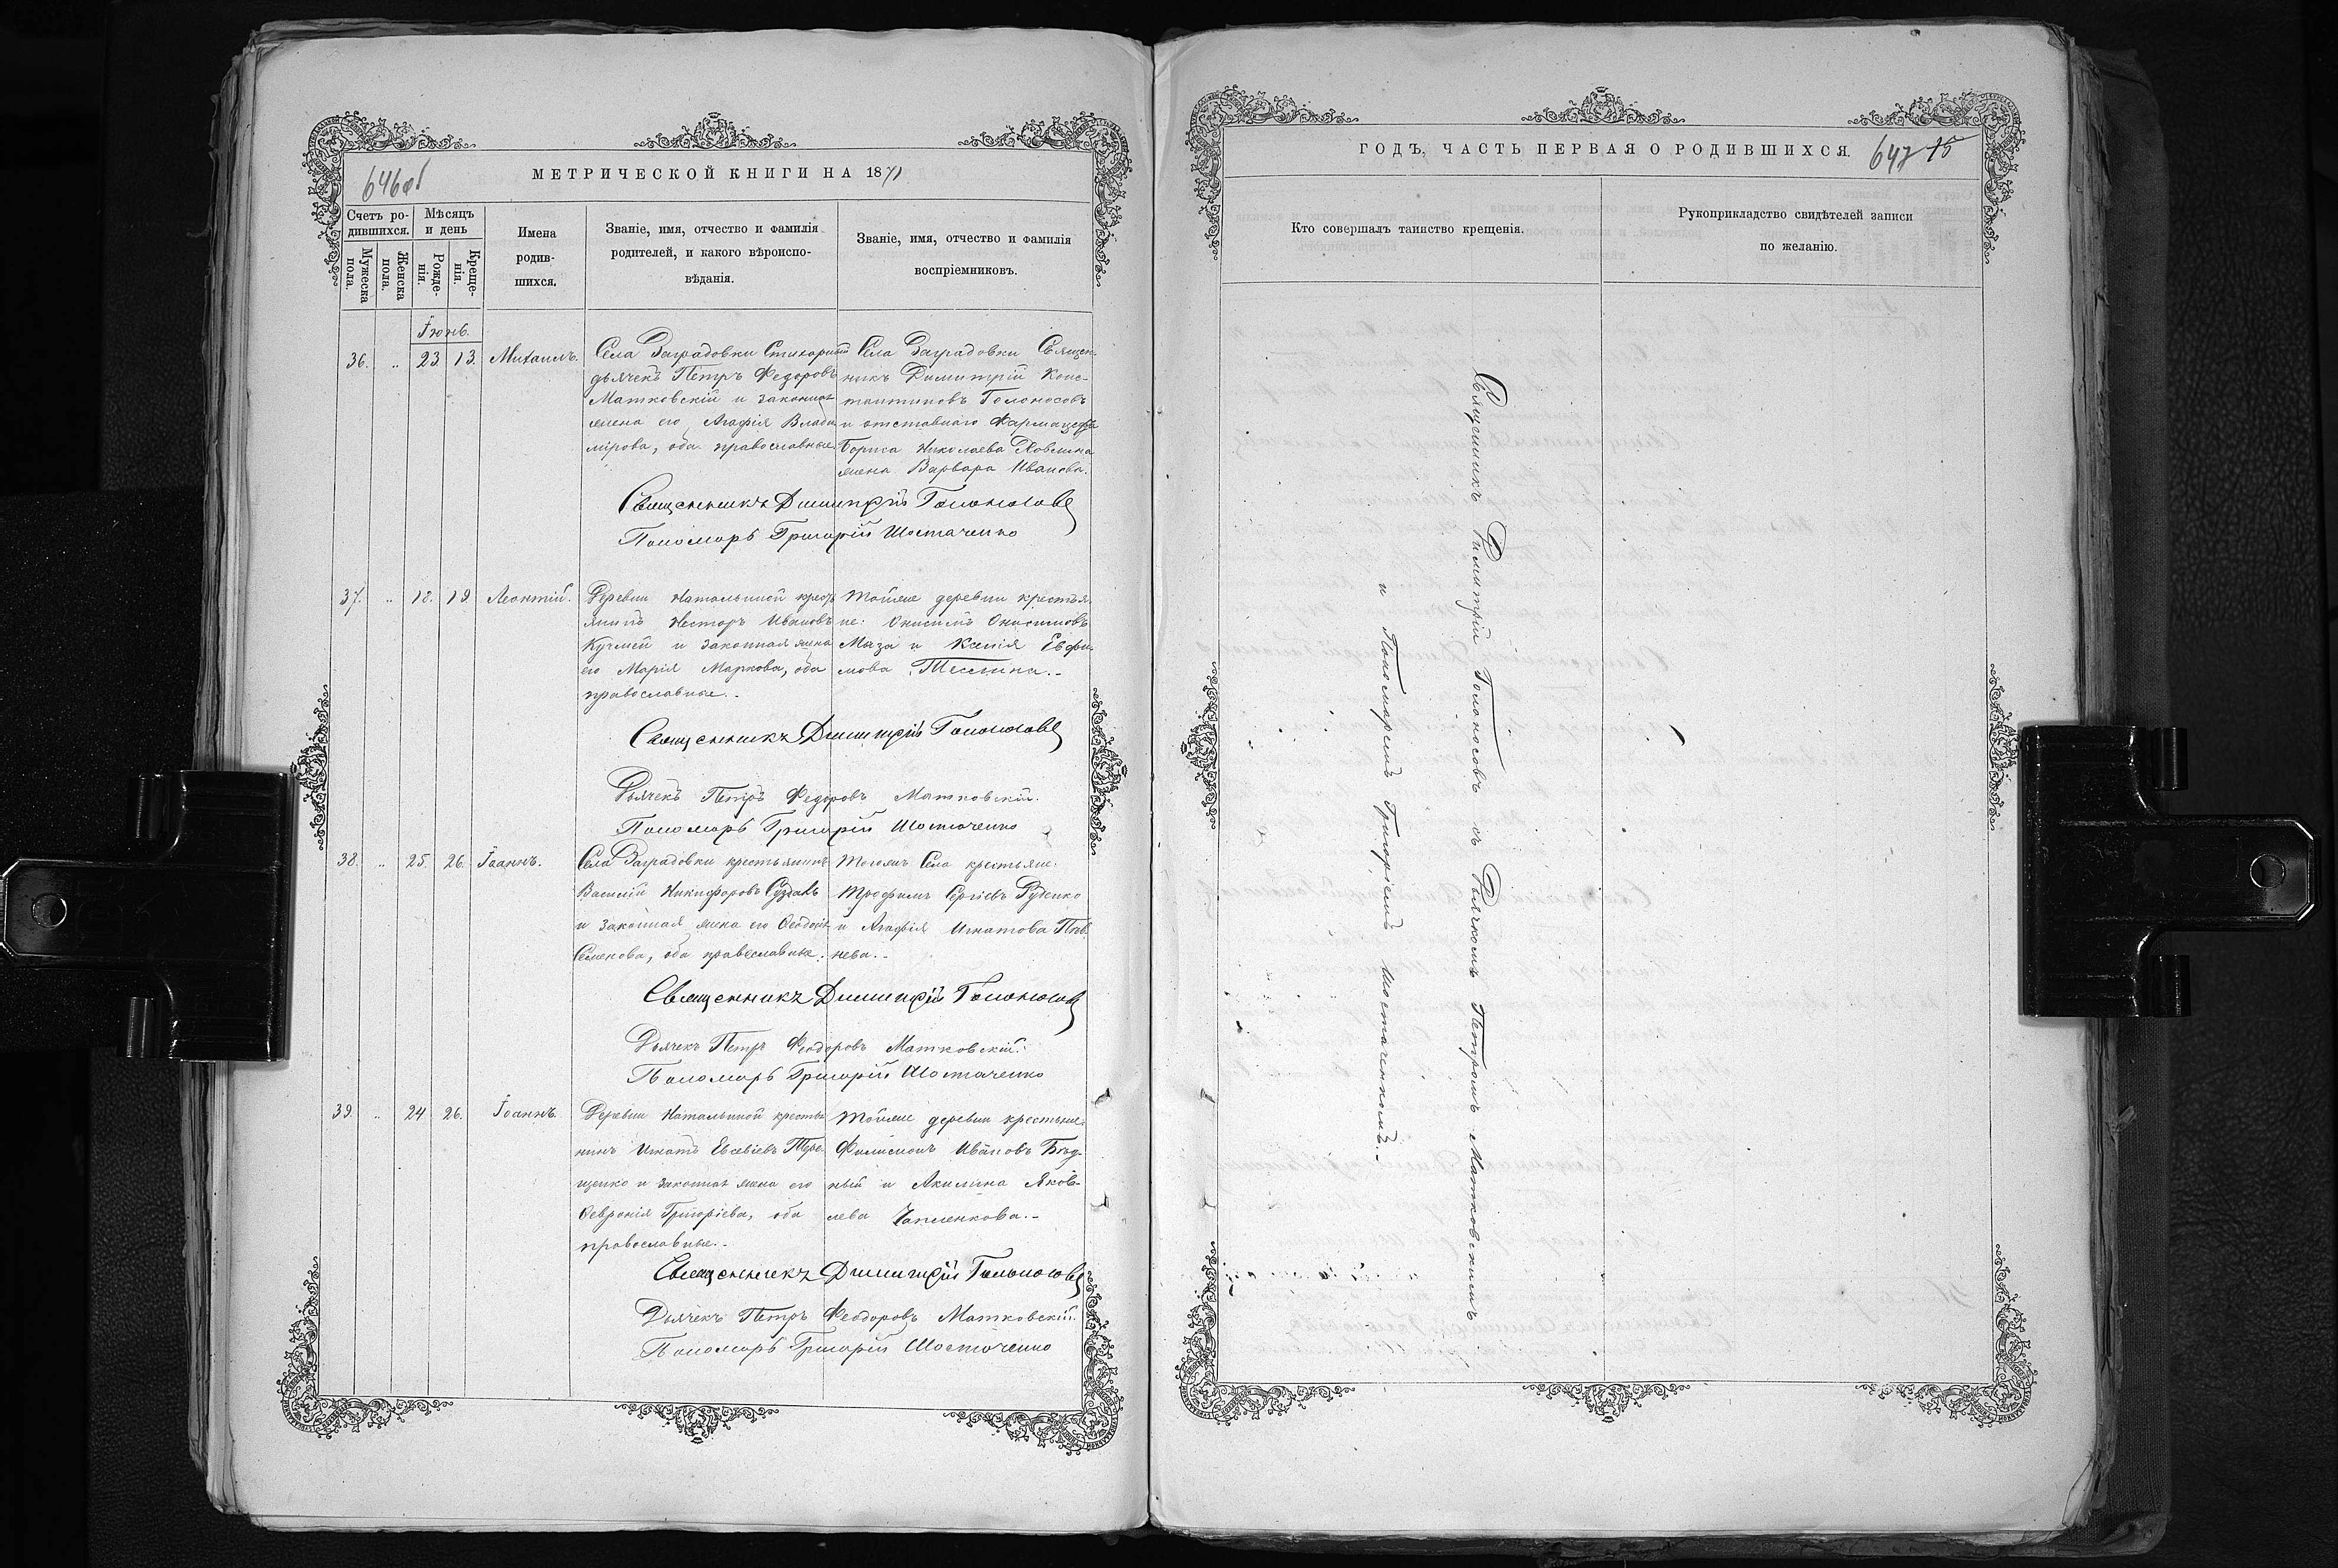 646об
МЕТРИЧЕСКОЙ КНИГИ НА 1871
Счетъ ро-
дившихся.
Мѣсяцъ
и день
Мужеска
пола.
Женска
пола.
Рожде-
нія.
Креще-
нія.
Имена
родив-
шихся.
Званіе, имя, отчество и фамилія
родителей, и какого вѣроиспо-
вѣданія.
Званіе, имя, отчество и фамилія
воспріемниковъ.
Іюнь.
36. .. 23 13. Михаилъ.
Села Заградовки Стихарный
дьячекъ Петръ Федоровъ
Матковскій и законная
жена его, Агафія Влади
мірова, оба православные.
Села Заградовки Священ-
никъ Димитрій Конс-
тантиновъ Голоносовъ
и отставнаго Фармацефта
Бориса Николаева
жена Варвара Иванова.
Священникъ Димитрій Голоносовъ
Пономарь Григорій Шостаченко
37. .. 18. 19. Леонтій.
Деревни Натальиной крест
янинъ Несторъ Ивановъ
Кучмій и законная жена
его Марія Маркова, оба
православные.-
Тойже деревни крестья-
не: Онисимъ Онисимовъ
Маза и Ксенія Евфи-
мова Теслина.-
Священникъ Димитрій Голоносовъ
Дьячекъ Петръ Федоровъ Матковскій.
Пономарь Григорій Шостаченко
38. .. 25. 26. Іоаннъ.
Села Заградовки крестьянинъ
Василій Никифоровъ Суздаль
и законная жена его Феодосія
Семенова, оба православные.
Тогожъ Села крестьяне:
Трофимъ Сергіевъ Руденко
и Агафія Игнатова Пив-
нева.-
Священникъ Димитрій Голоносовъ
Дьячекъ Петръ Феодоровъ Матковскій.
Пономарь Григорій Шостаченко
39. .. 24. 26. Іоаннъ.
Деревни Натальиной крестья
нинъ Игнатъ Евсевіевъ Тере-
щенко и законная жена его
Февронія Григоріева, оба
православные.-
Тойже деревни крестьяне:
Филимонъ Ивановъ Бѣд-
ный и Акилина Яков-
лева Чапленкова.-
Священникъ Димитрій Голоносовъ
Дьячекъ Петръ Феодоровъ Матковскій.
Пономарь Григорій Шостаченко
ГОДЪ, ЧАСТЬ ПЕРВАЯ О РОДИВШИХСЯ.
647 15
Кто совершалъ таинство крещенія.
Рукоприкладство свидѣтелей записи
по желанію.
Священникъ Димитрій Голоносовъ съ Дьячкомъ Петромъ Матковскимъ
и Пономаремъ Григоріемъ Шостаченкомъ.-